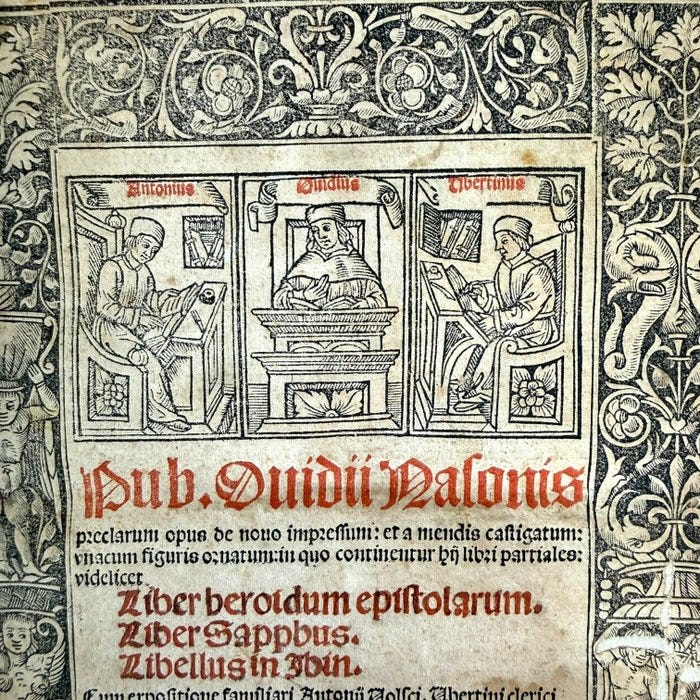 Antonius
Ouidius
Ubertinus
Pub. Ouidii Nasonis
preclarum opus de nouo impressum: et a mendis castigatum:
vnacum figuris ornatum: in quo continentur hij libri partiales:
videlicet
Liber heroidum epistolarum.
Liber Sapphus.
Libellus in Ibin.
Cum expositione familiari Antonij Volsci. Ubertini clerici